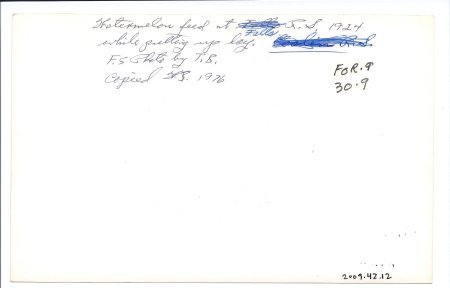 Watermelon feed at Fells R.S 1924
while putting up hay.
F.S Photo by T.B.
Copied 1976
FOR.9
30.9
2009.42.12